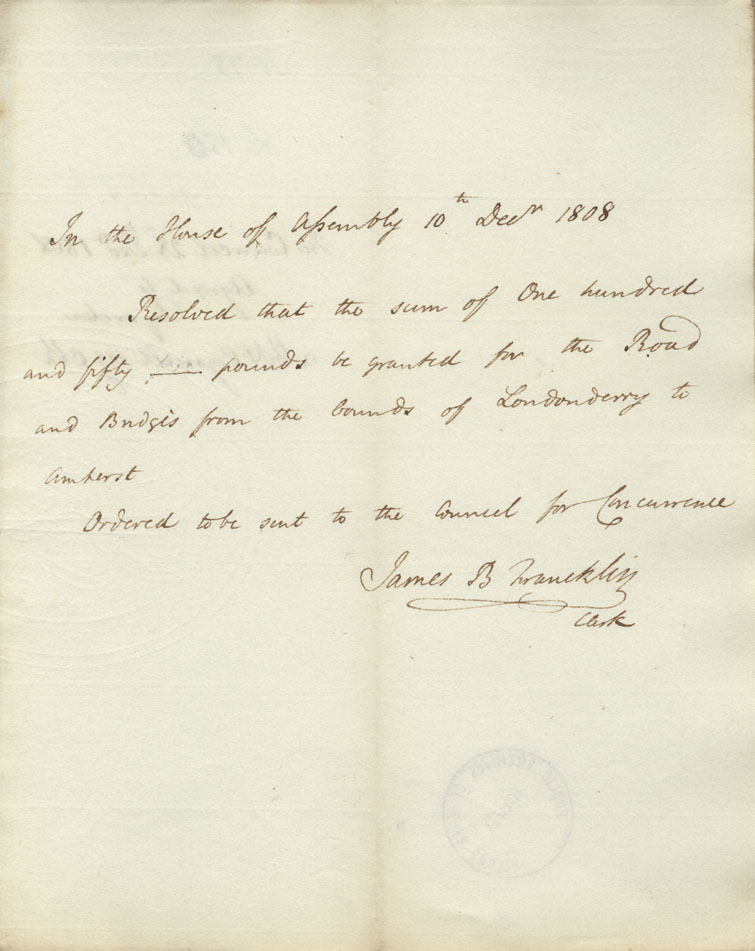 In the House of Assembly 10th Decr 1808
Resolved that the sum of One hundred
and fifty pounds be granted for the Road
and Bridges from the bounds of Londonderry to
Amherst
Ordered to be sent to the Council for Concurrence
James B Franklin
Clerk